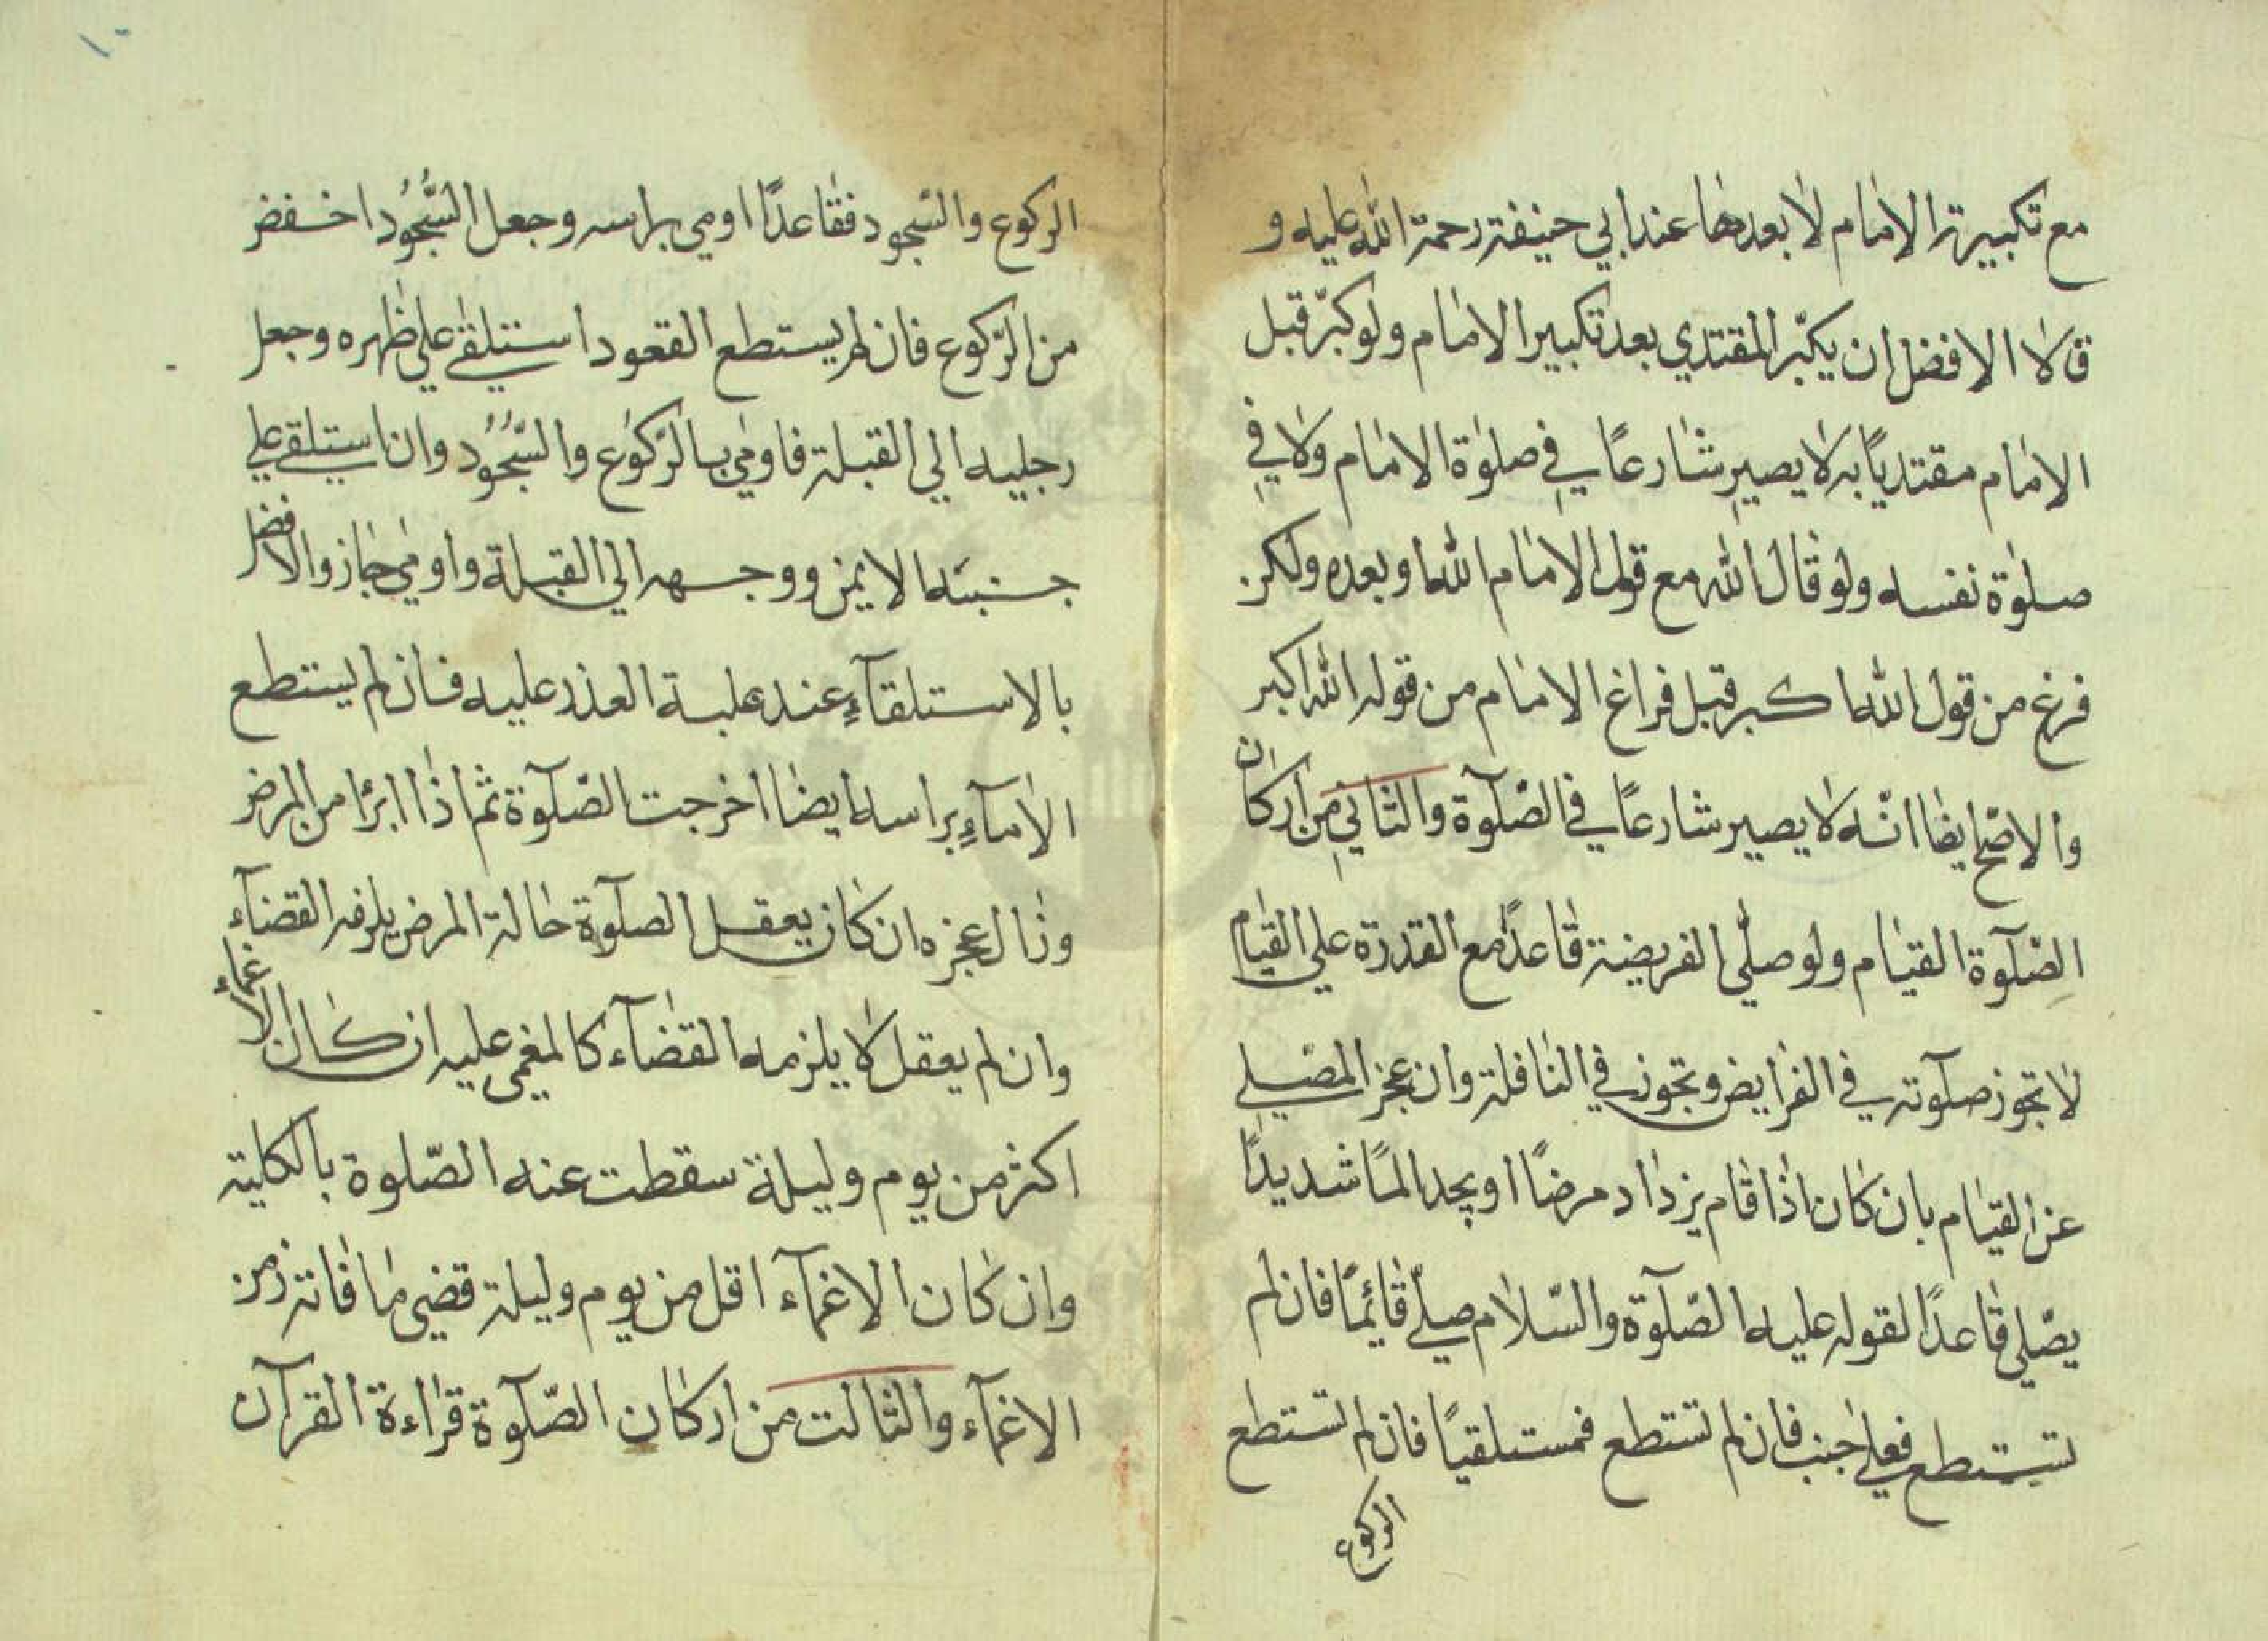 مع تكبيرة الامام لا بعدها عند ابي حنيفة رحمة الله عليه و
قالا الافضل ان يكبّر المقتدي بعد تكبير الامام ولو كبّر قبل
الامام مقتدياً به لا يصير شارعاً في صلوة الامام ولا في
صلوة نفسه ولو قال الله مع قول الامام الله او بعده ولكن
فرغ من قول الله اكبر قبل فراغ الامام من قوله الله اكبر
والاصح ايضا انّه لا يصير شارعاً في الصّلوة والثاني من اركان
الصّلوة القيام ولو صلّى الفريضة قاعداً مع القدرة على القيام
لا تجوز صلوته في الفرايض وتجوز في النافلة وان عجز المصّلي
عن القيام بان كان اذا قام يزداد مرضاً او يجد الماً شديداً
يصّلي قاعداً لقوله عليه الصّلوة والسّلام صلّ قائماً فان لم
تستطع فعلى جنب فان لم تستطع فمستلقياً فان لم تستطع
الركوع
١٠
الركوع والسّجود فقاعداً اومي براسه وجعل السُّجُود اخفض
من الرّكوع فان لم يستطع القعود استلقى علي ظهره وجعل
رجليه الي القبلة فاومي بالرّكوع والسّجُود وان استلقي علي
جنبه الايمن ووجهه الي القبلة واومي جاز والافضل
بالاستلقآءِ عند علبة العذر عليه فان لم يستطع
الامآءِ براسه ايضا اخرجت الصّلوة ثم اذا ابرا من المرض
وزال عجزه ان كان يعقل الصلوة حالة المرض يلزمه القضآء
وان لم يعقل لا يلزمه القضآء كالمغمى عليه ان كان الاغماء
اكثر من يوم وليلة سقطت عنه الصّلوة بالكلية
وان كان الاغمآء اقل من يوم وليلة قضي ما فاته زمن
الاغمآء والثالث من اركان الصّلوة قراءة القرآن